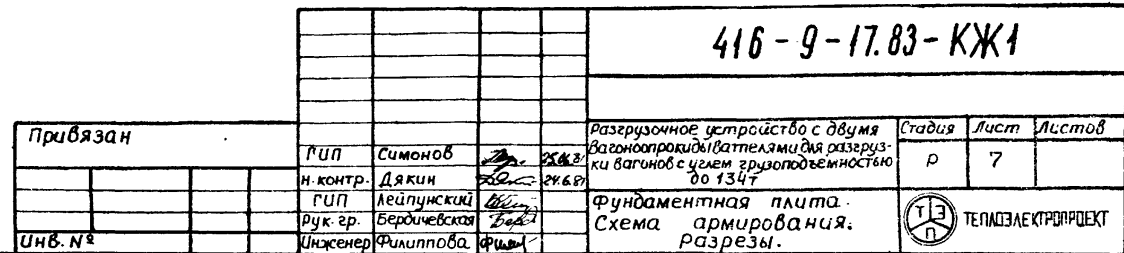 416-9-17.83-КЖ1
Привязан
Инв. №
ГИП Симонов
Н.контр. Дякин 24.6.81
ГИП Лейпунский
Рук. гр. Бердичевская
Инженер Филиппова
Разгрузочное устройство с двумя
вагоноопрокидывателями для разгруз-
ки вагонов с углем грузоподъемностью
до 134т
Стадия Лист Листов
Р 7
Фундаментная плита.
Схема армирования.
Разрезы.
ТЭП ТЕПЛОЭЛЕКТРОПРОЕКТ